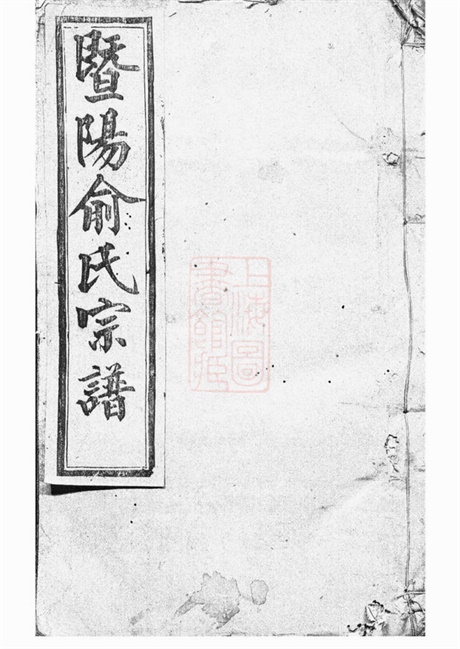 暨陽俞氏宗譜
上海圖
書館藏